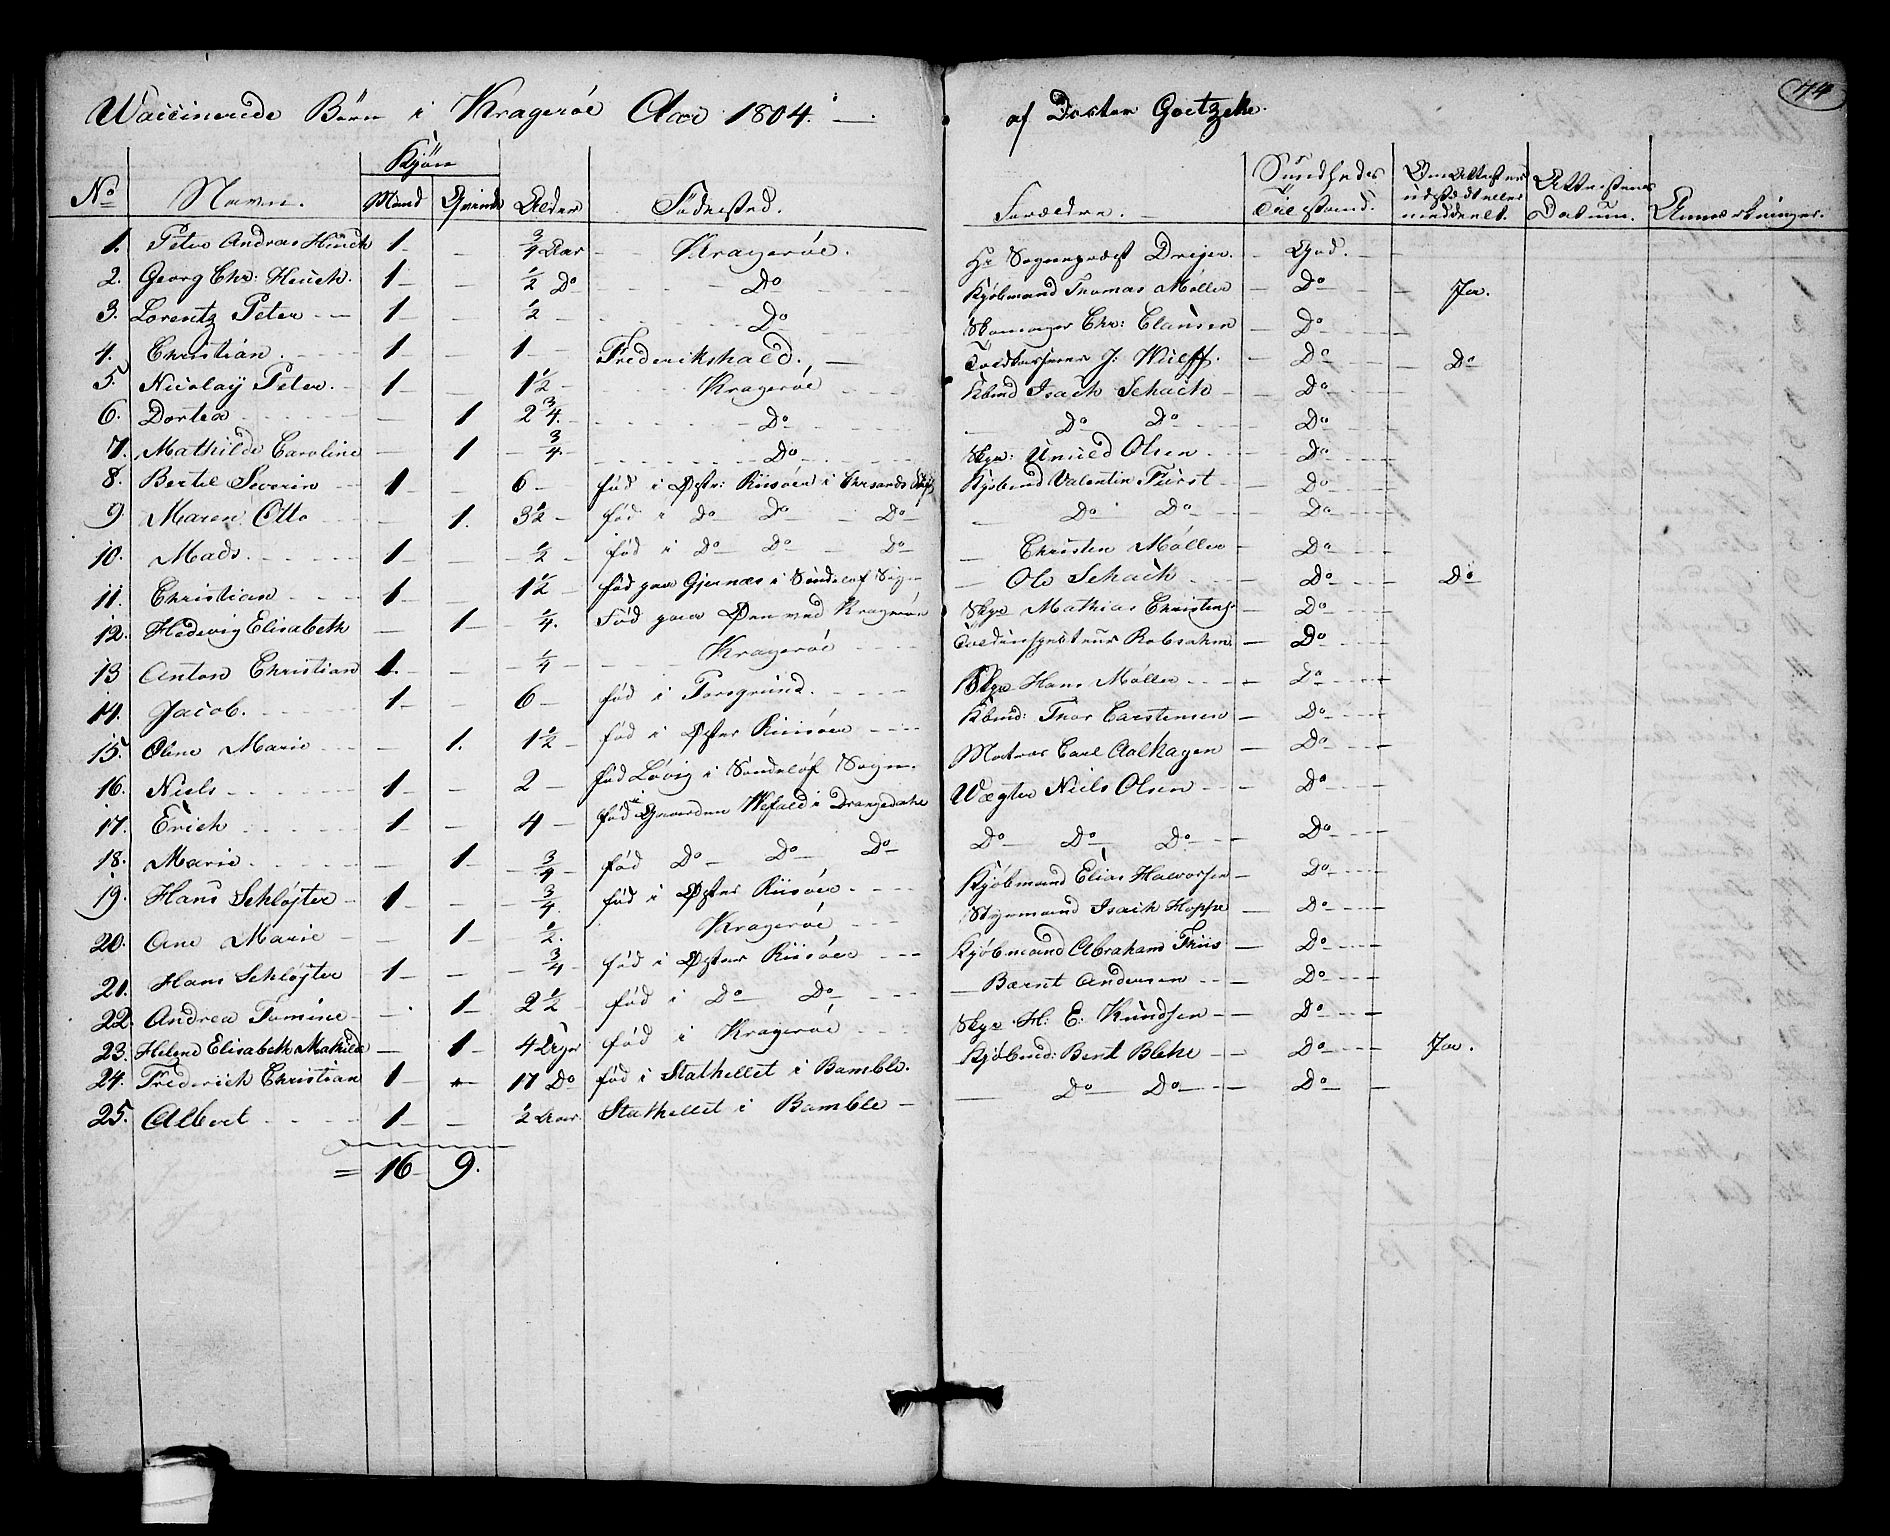 Waccinerede Børn i Kragerøe Aar 1804. af Docter Goetzche.
74
Kjøn
No Navn. Mand Qvinde Alder Fødested. Forældre. Sundheds Tilstand. Om Attester udstædt eller meddeelt. Attestens Datum. Anmærkninger.
1. Peter Andreas Heuch 1 - 3/4 Aar Kragerøe. Hr Sogneprest Dreyer. God.
2. Georg Chr: Heuch. 1 - 1/2 Do Do Kjøbmand Thomas Møller Do Ja.
3. Lorentz Peter 1 - 1/2 Do Skomager Chr: Clausen Do
4. Christian. 1 1 Frederikshald. Toldkasserer J: Wulff. Do Do
5. Nicolaÿ Peter. 1 - 1 1/2 Kragerøe Kbmd Isach Schach Do
6. Dortea 1 2 3/4. Do Do Do Do
7. Mathilde Caroline 1 3/4. Do Skpr: Olsen Do
8. Bertel Severin 1 - 6 fød i Øster: Riisøer i Chrsands Stift Kjøbmd Valentin Fürst Do
9. Maren Otto 1. 3 1/2 fød i Do Do Do Do Do Do
10. Mads. 1 1/2 fød i Do Do Do Christen Møller Do
11. Christian 1 1 1/2 fød paa Gjernæs i Søndeløf Sogn Ole Schach Do Do
12. Hedevig Elisabeth 1 1/4. Fød paa Øen ved Kragerøe Skpr Mathias Christens: Do
13 Anton Christian 1 - 1/4 Kragerøe Toldinspecteur Robsahm Do
14. Jacob. 1 - 6 fød i Porsgrund. Skpr Hans Møller Do
15. Olene Marie 1. 1 1/2 fød i Øster Riisøer Kbmd: Thor Carstensen Do
16. Niels 1 - 2 fød Løvig i Søndeløf Sogn. Matros Carl Aalhagen Do
17. Erich 1 - 4 fød i Gaarden Wefald i Drangedahl Wægter Niels Olsen Do
18. Marie 1 3/4 fød Do Do Do Do Do Do Do
19. Hans Schløjter 1 3/4. fød i Øster Riisøer Kjøbmand Elias Halvorsen Do
20. Ane Marie 1 1/2. Kragerøe Styrmand Isach Hoppe Do
21. Hans Schløjter 1 3/4 fød i Øster Riisøer Kjøbmand Abraham Friis Do
22. Andrea Tomine 1 2 1/2 fød i Do Do Bærnt Andersen Do
23. Helene Elisabeth Mathilde 1 4 Uger fød i Kragerøe Skpr H: E: Knudsen Do
24. Frederich Christian 1 17 Do fød i Stathellet i Bamble. Kjøbmd: Bent Blehe Do Ja.
25. Albert 1 1/2 Aar. Stathellet i Bamble Do Do Do
= 16 9.